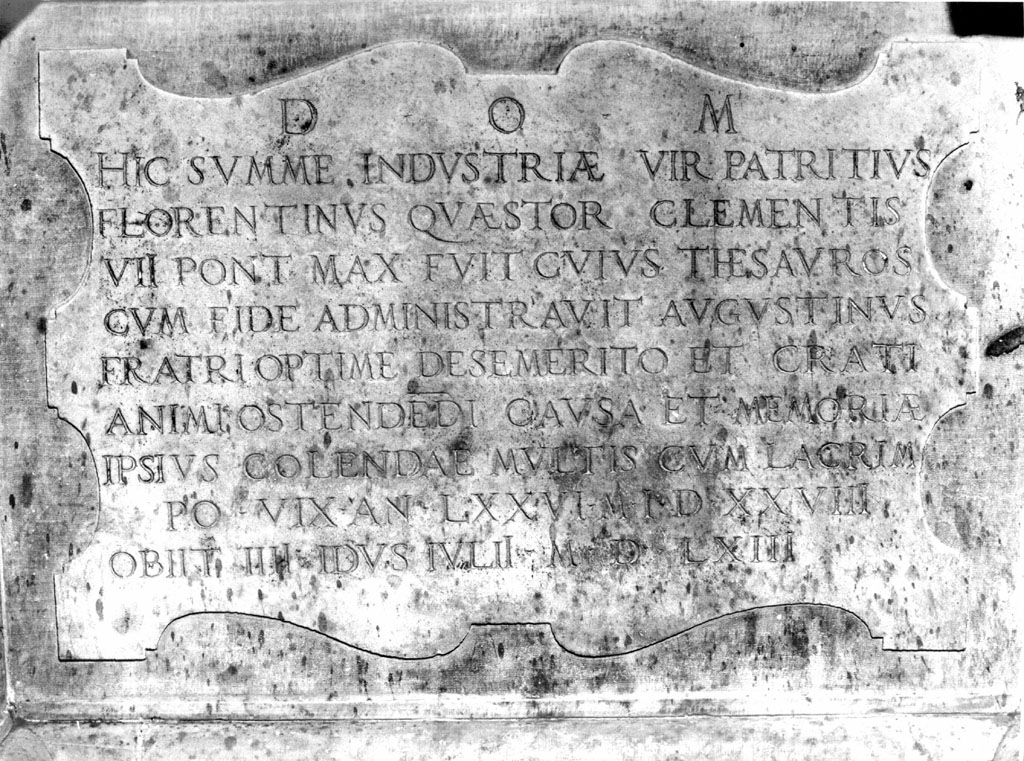 D O M
HIC SVMME INDVSTRIÆ VIR PATRITIVS
FLORENTINVS QVÆSTOR CLEMENTIS
VII PONT MAX FVIT CVIVS THESAVROS
CVM FIDE ADMINISTRAVIT AVGVSTINVS
FRATRI OPTIME DESEMERITO ET CRATI
ANIMI OSTENDEDI CAVSA ET MEMORIÆ
IPSIVS COLENDAE MVLTIS CVM LACRIM
PO VIX AN LXXVI M I D XXVIII
OBIIT IIII IDVS IVLII M D LXIII